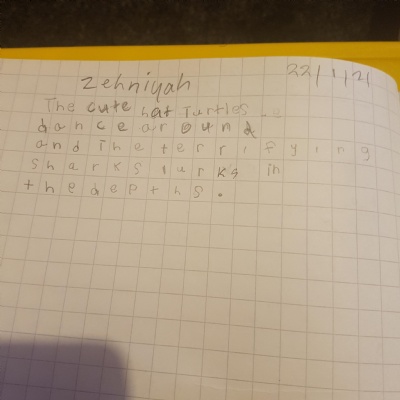 Zehniyah 22/1/21
The cute hat Turtles
dance around
and The terrifying
sharks lurks in
the depths.